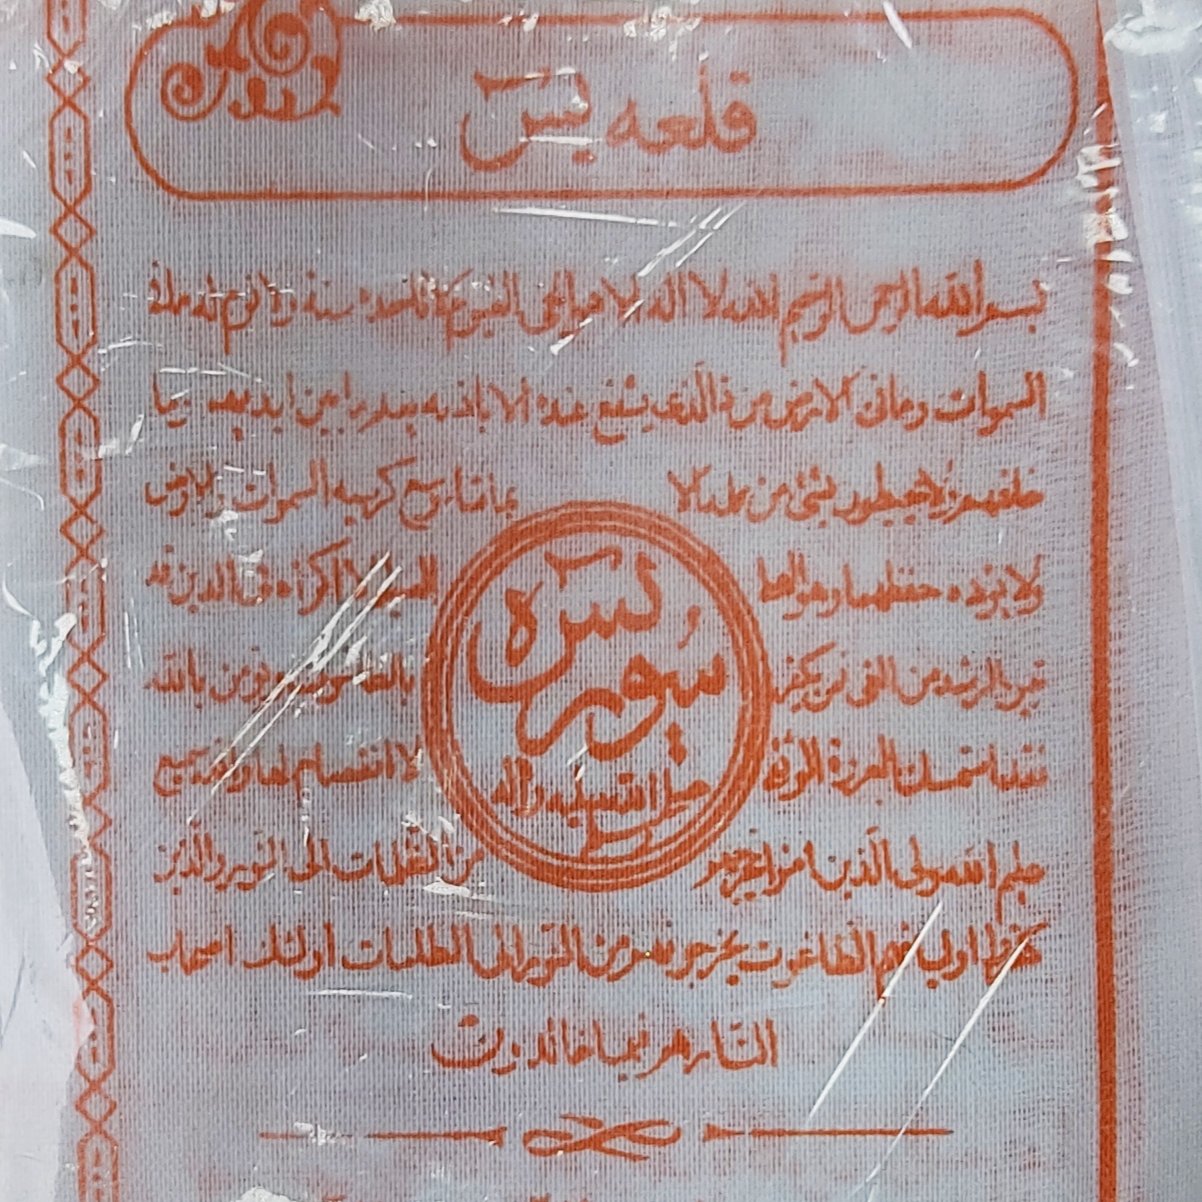 قلعه یٰسٓ
بسم الله الرحمن الرحیم الله لا اله الا هو الحی القیوم لا تاخذه سنة ولا نوم له ما فی
السموات وما فی الارض من ذالذی یشفع عنده الا باذنه یعلم ما بین ایدیهم وما
خلفهم ولا یحیطون بشئ من علمه الا بما شاء وسع کرسیه السموات والارض
ولا یؤده حفظهما وهو العلی العظیم لا اکراه فی الدین قد
تبین الرشد من الغی فمن یکفر بالطاغوت ویؤمن بالله
فقد استمسک بالعروة الوثقی لا انفصام لها والله سمیع
علیم الله ولی الذین امنوا یخرجهم من الظلمات الی النور والذین
کفروا اولیائهم الطاغوت یخرجونهم من النور الی الظلمات اولئک اصحاب
النار هم فیها خالدون
سوره یٰسٓ
صلی الله علیه واله
وسلم